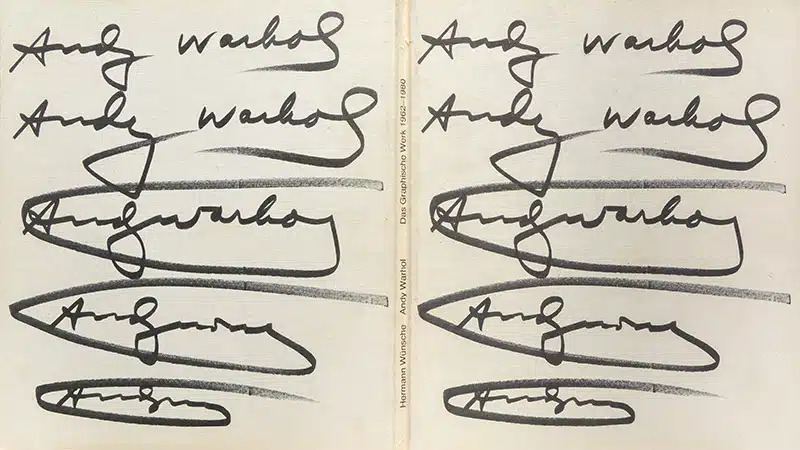 Andy Warhol
Andy Warhol
Andy Warhol
Andy
Andy
Hermann Wünsche Andy Warhol Das Graphische Werk 1962–1980
Andy Warhol
Andy Warhol
Andy Warhol
Andy
Andy